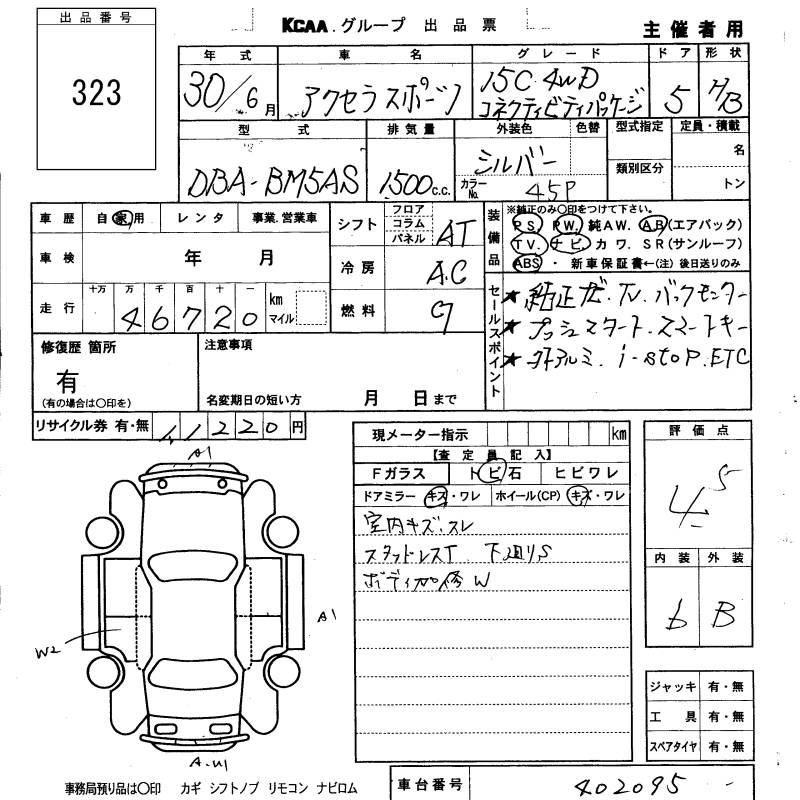 出品番号
323
KCAA.グループ 出品票
主催者用
年式 車名 グレード ドア 形状
30/6月 アクセラスポーツ 15C 4WD コネクティビティパッケージ 5 H/B
型式 排気量 外装色 色替 型式指定 定員・積載
DBA-BM5AS 1500c.c. シルバー 名
カラーNo. 45P 類別区分 トン
車歴 自家用 レンタ 事業.営業車
車検 年 月
走行 十万 万 千 百 十 一 km マイル
46720
シフト フロア コラム パネル AT
冷房 A.C
燃料 G
装備品 ※純正のみ〇印をつけて下さい。
PS. PW. 純AW. AB(エアバック)
TV. ナビ. カワ. SR(サンルーフ)
ABS ・ 新車保証書←(注) 後日送りのみ
セールスポイント
★ 純正ナビ.TV.バックモニター
★ プッシュスタート.スマートキー
★ 外アルミ. i-stop.ETC
修復歴 箇所
有
(有の場合は〇印を)
注意事項
名変期日の短い方 月 日まで
リサイクル券 有・無 11220円
現メーター指示 km
【査定員記入】
Fガラス トビ石 ヒビワレ
ドアミラー キズ・ワレ ホイール(CP) キズ・ワレ
室内キズ.スレ
スタッドレスT 下廻りS
ボディ加修W
評価点
4.5
内装 外装
b B
A1
A1
W2
A.U1
ジャッキ 有・無
工具 有・無
スペアタイヤ 有・無
事務局預り品は〇印 カギ シフトノブ リモコン ナビロム
車台番号 402095